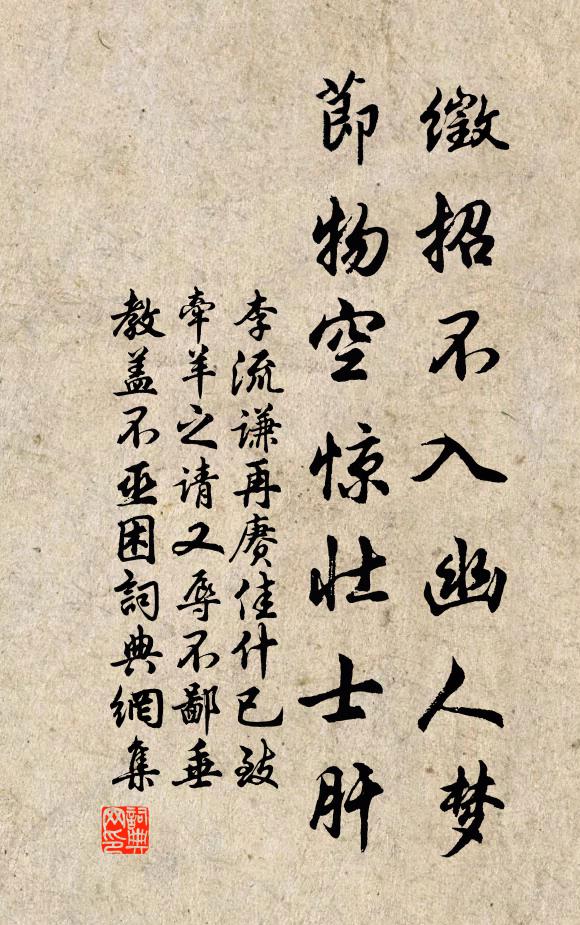 徵招不入幽人梦
節物空惊壮士肝
李流谦再赓佳什已致
牵羊之请又辱不鄙垂
教盖不亟困詞典網集
詞典网印